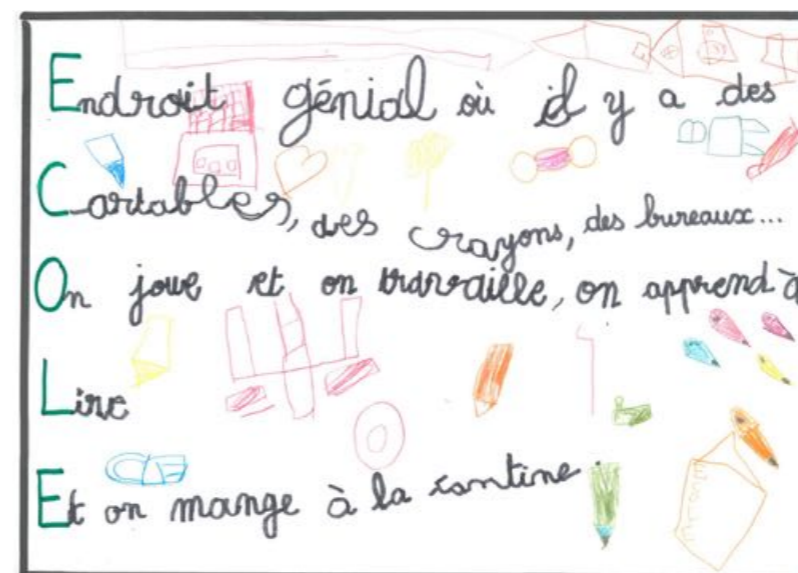 Endroit génial où il y a des
Cartables, des crayons, des bureaux...
On joue et on travaille, on apprend à
Lire
Et on mange à la cantine.